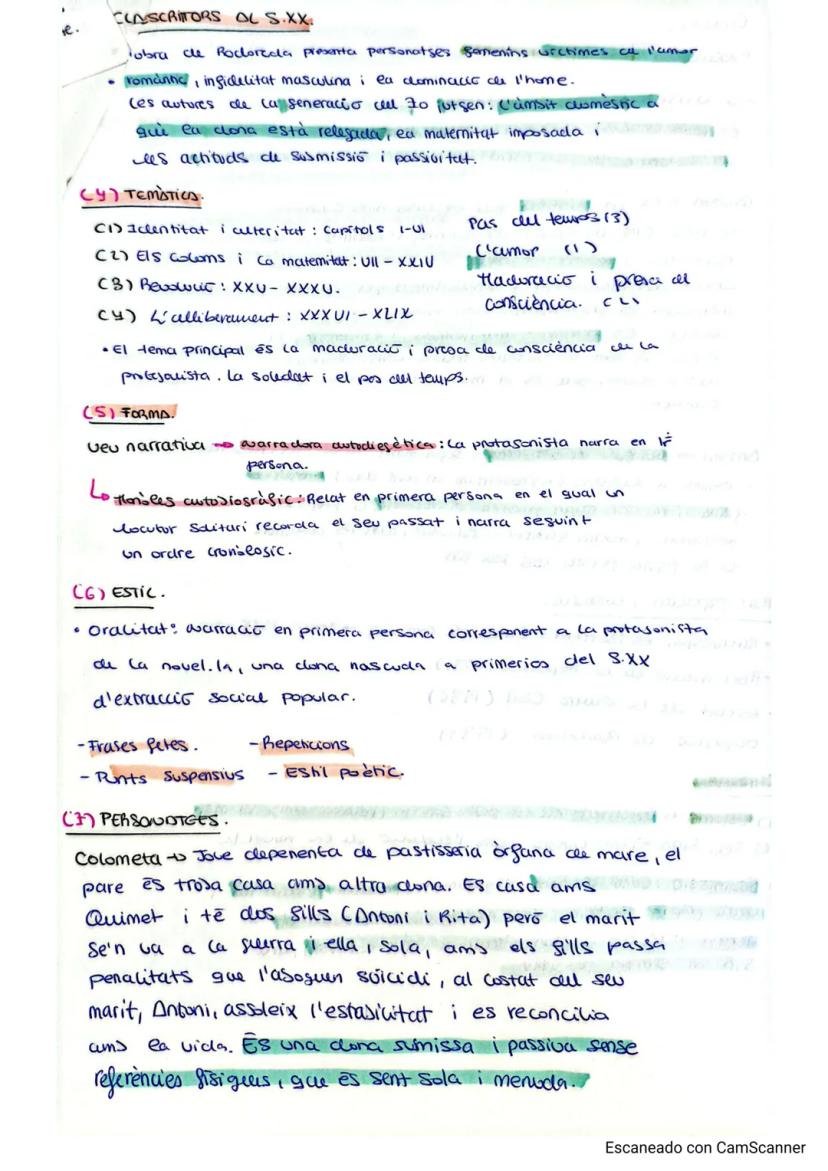 e.
ESCRITORS DL S.XX.
l'obra de Rodoreda presenta personatges femenins víctimes de l'amor
• romàntic, infidelitat masculina i la dominació de l'home.
Les autores de la generació del 70 jutgen: l'àmbit domèstic a
què la dona està relegada, la maternitat imposada i
les actituds de submissió i passivitat.
(4) TEMÀTICA.
C1) Identitat i alteritat: capítols I-VI
C2) Els coloms i la maternitat: VII - XXIV
C3) Revolució: XXV - XXXV.
C4) L'alliberament: XXXVI - XLIX
Pas del temps (3)
L'amor (1)
Maduració i presa de
consciència. (2)
• El tema principal és la maduració i presa de consciència de la
protagonista. La soledat i el pas del temps.
(5) FORMA.
Veu narrativa → narradora autodiegètica: La protagonista narra en 1ª
persona.
↳ Monòleg autobiogràfic: Relat en primera persona en el qual un
locutor solitari recorda el seu passat i narra seguint
un ordre cronològic.
(6) ESTIL.
• Oralitat: narració en primera persona corresponent a la protagonista
de la novel.la, una dona nascuda a primerios del S.XX
d'extracció social popular.
- Frases fetes. - Repeticions
- Punts suspensius - Estil poètic.
(7) PERSONATGES.
Colometa → Jove dependenta de pastisseria òrfana de mare, el
pare és troba casa amb altra dona. Es casa amb
Quimet i té dos fills (Antoni i Rita) però el marit
se'n va a la guerra i ella, sola, amb els fills passa
penalitats que l'aboquen suïcidi, al costat del seu
marit, Antoni, assoleix l'estabilitat i es reconcilia
amb la vida. És una dona sumissa i passiva sense
referències físiques, que és sent sola i menuda.
Escaneado con CamScanner